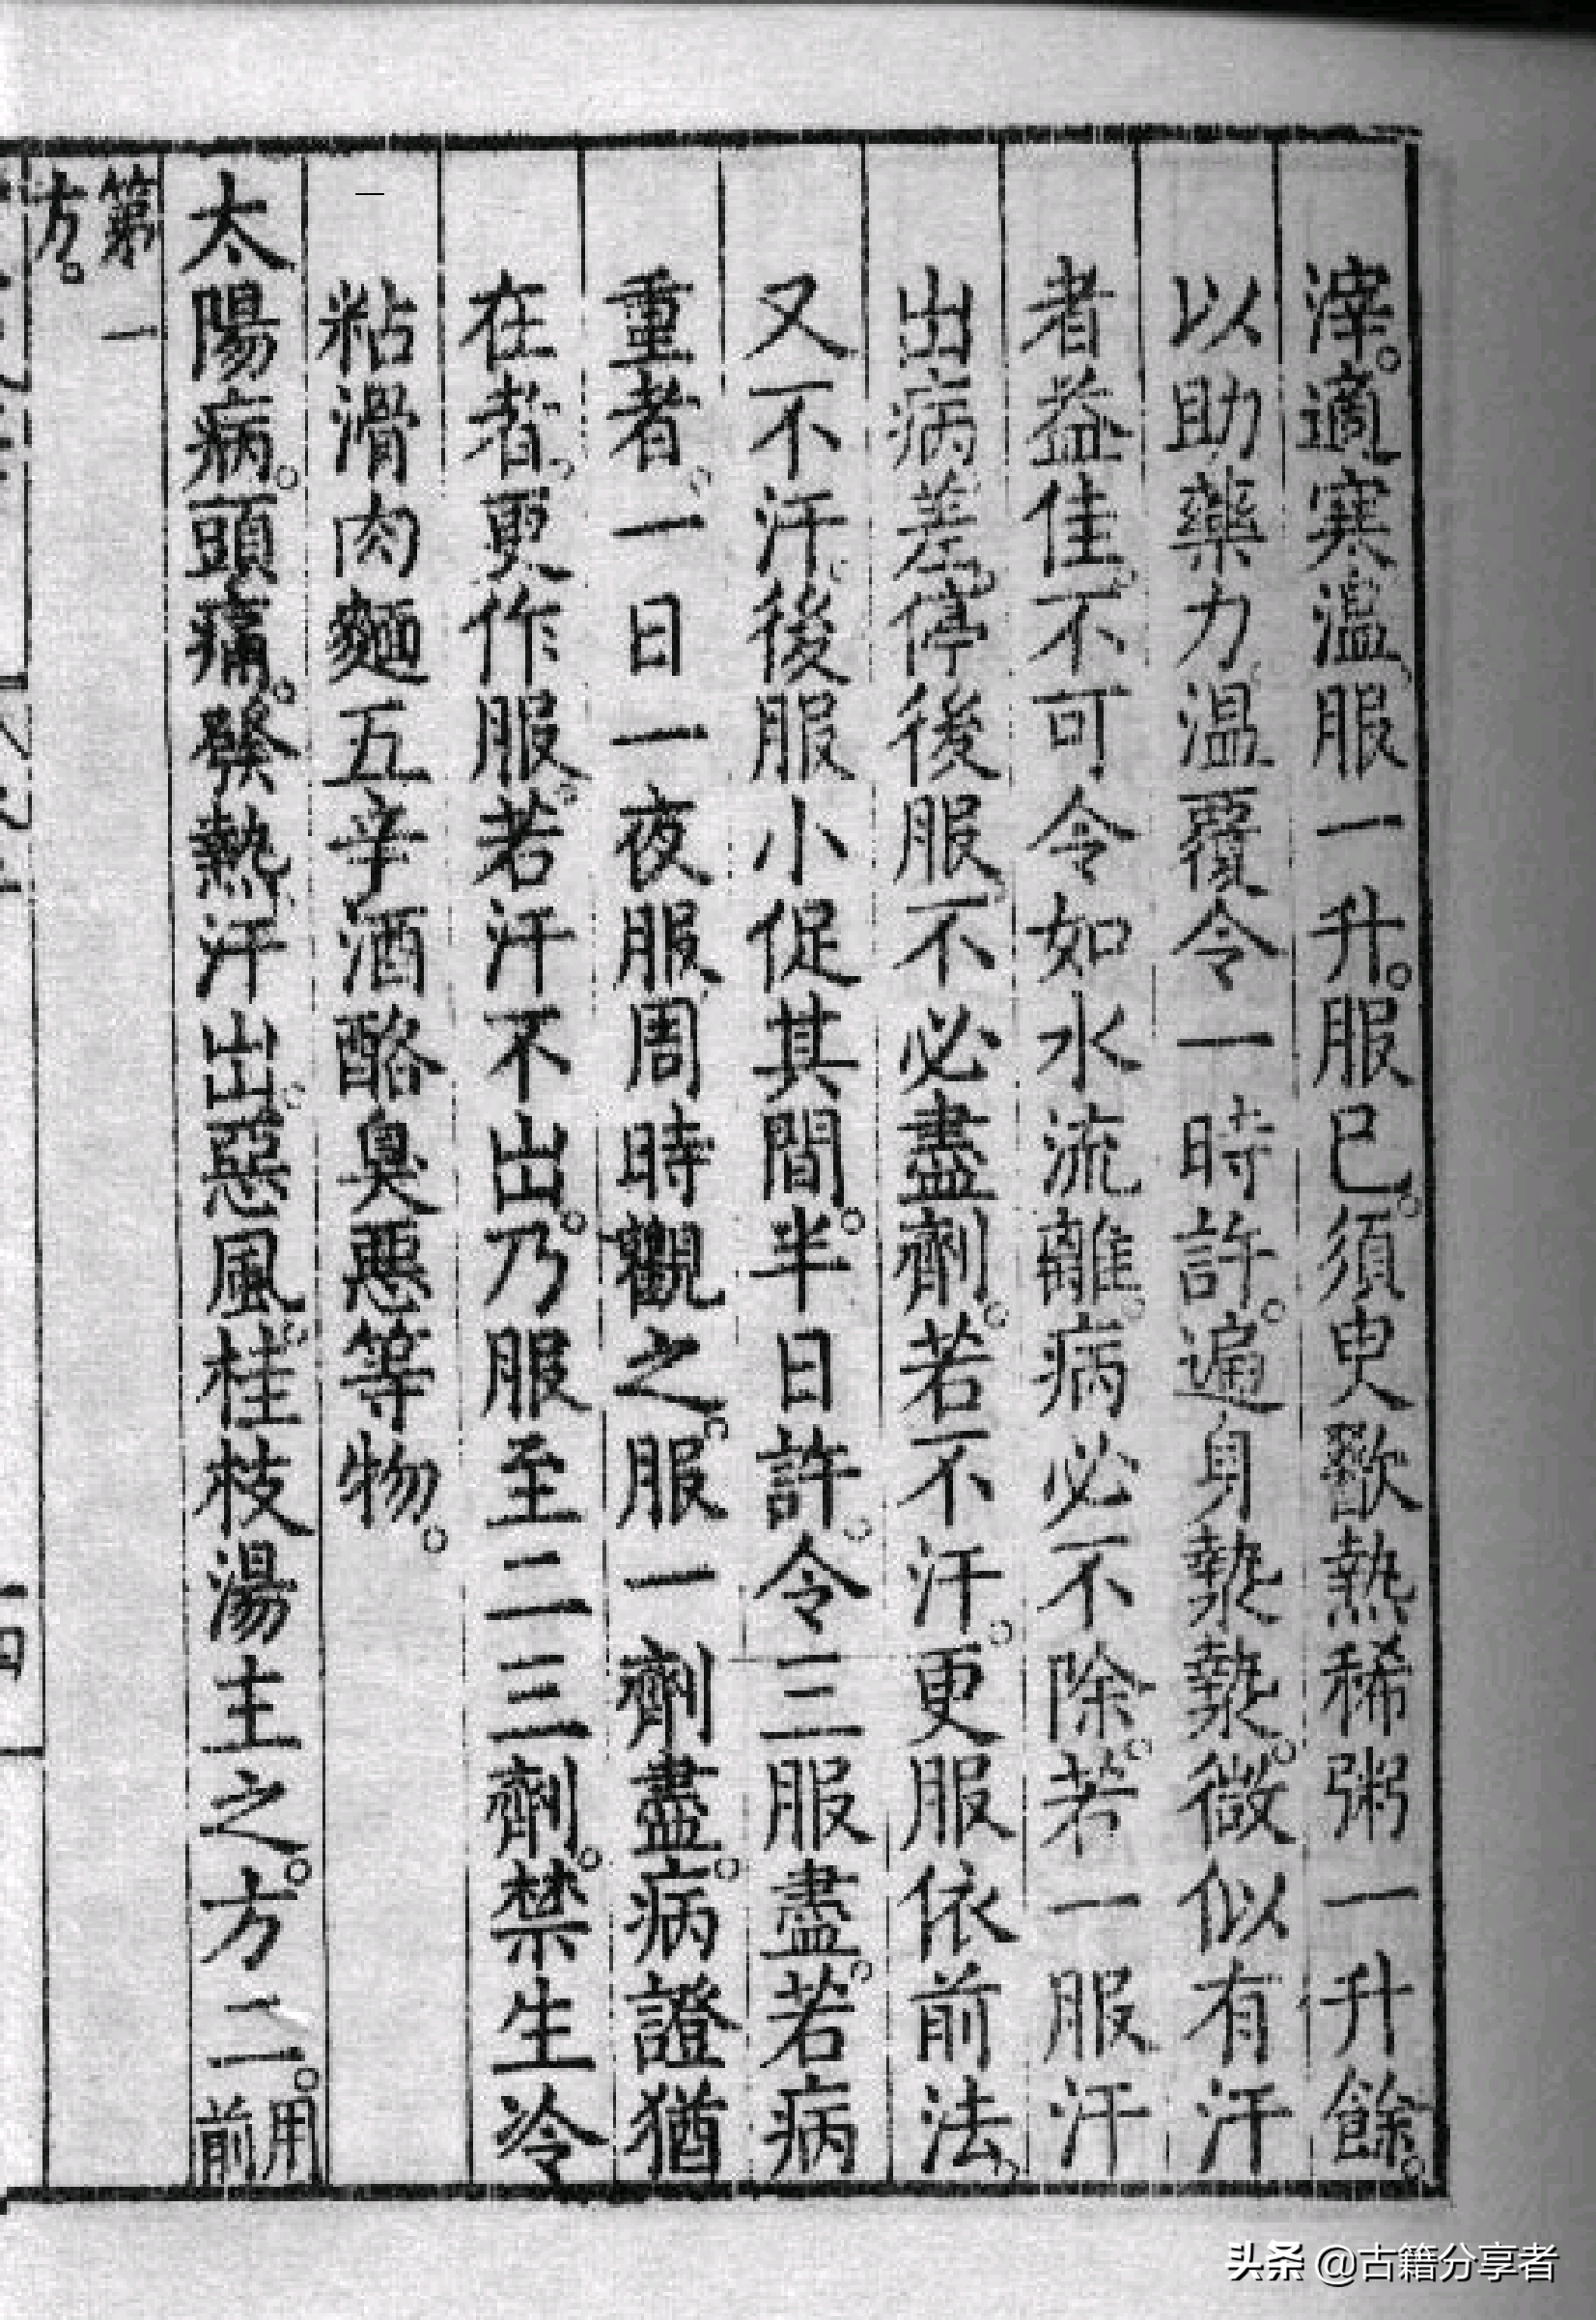 滓。適寒溫。服一升。服已。須臾歠熱稀粥一升餘。
以助藥力。溫覆令一時許。遍身漐漐。微似有汗
者益佳。不可令如水流離。病必不除。若一服汗
出病差。停後服。不必盡劑。若不汗。更服依前法。
又不汗。後服小促其間。半日許。令三服盡。若病
重者。一日一夜服。周時觀之。服一劑盡。病證猶
在者。更作服。若汗不出。乃服至二三劑。禁生冷
粘滑肉麵五辛酒酪臭惡等物。
太陽病。頭痛。發熱。汗出。惡風。桂枝湯主之。方二。用前
第一方。
头条 @古籍分享者